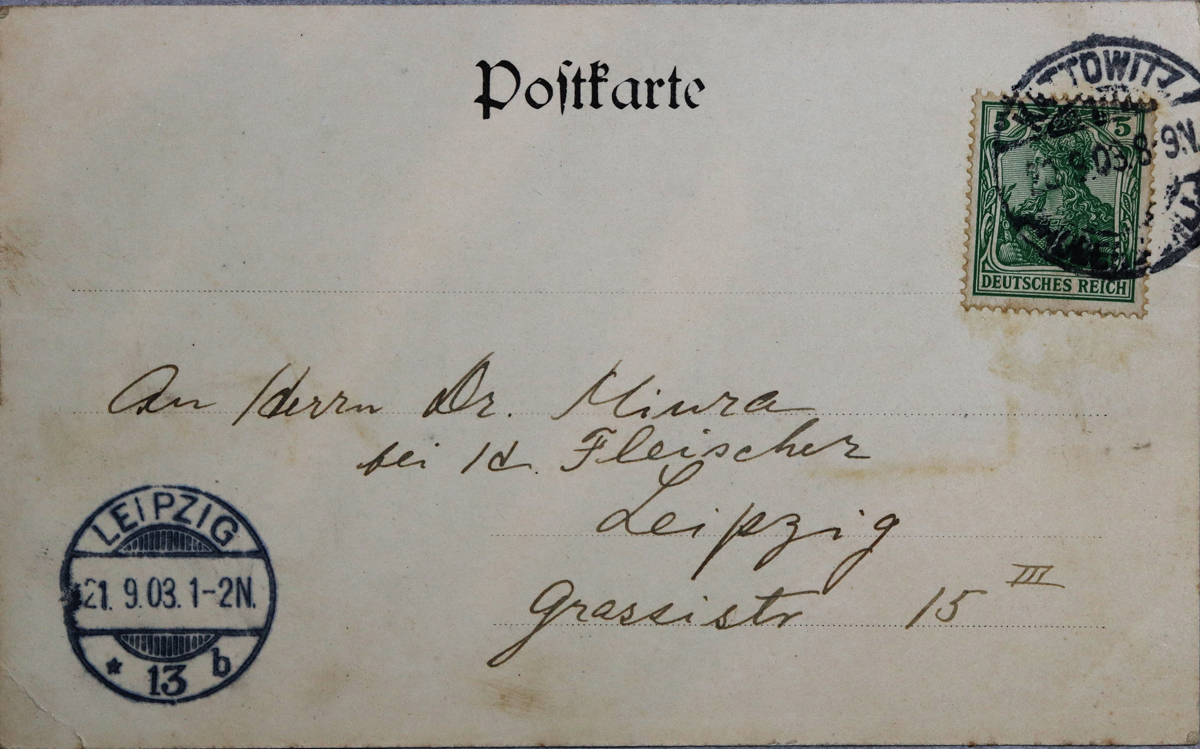 Postkarte
5 5
DEUTSCHES REICH
9.03.8-9N.
An Herrn Dr. Miura
bei H. Fleischer
Leipzig
Grassistr 15 III
LEIPZIG
21. 9.03. 1-2N.
* 13 b